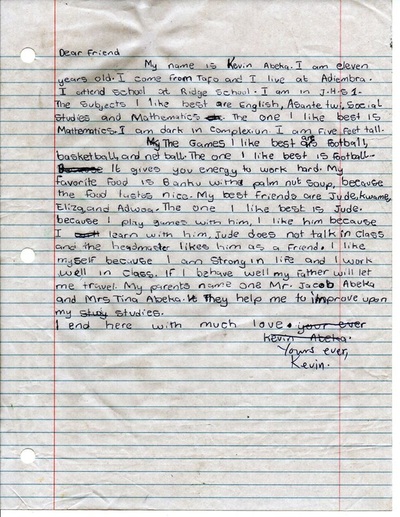 Dear Friend
My name is Kevin Abeka. I am eleven
years old. I come from Tafo and I live at Adiembra.
I attend school at Ridge School. I am in J.H.S 1.
The subjects I like best are English, Asante twi, Social
studies and Mathematics. The one I like best is
Mathematics. I am dark in complexion I am five feet tall.
The Games I like best are football,
basketball, and net ball. The one I like best is football.
It gives you energy to work hard. My
favorite food is Banku with palm nut soup, because
the food tastes nice. My best friends are Jude, Kwame,
Eliza, and Adwoa. The one I like best is Jude.
because I play games with him, I like him because
I learn with him, Jude does not talk in class
and the headmaster likes him as a friend. I like
myself because I am strong in life and I work
well in class. If I behave well my father will let
me travel. My parents name one Mr. Jacob Abeka
and Mrs Tina Abeka. They help me to improve upon
my studies.
I end here with much love. your ever
Kevin Abeka.
Yours ever,
Kevin.